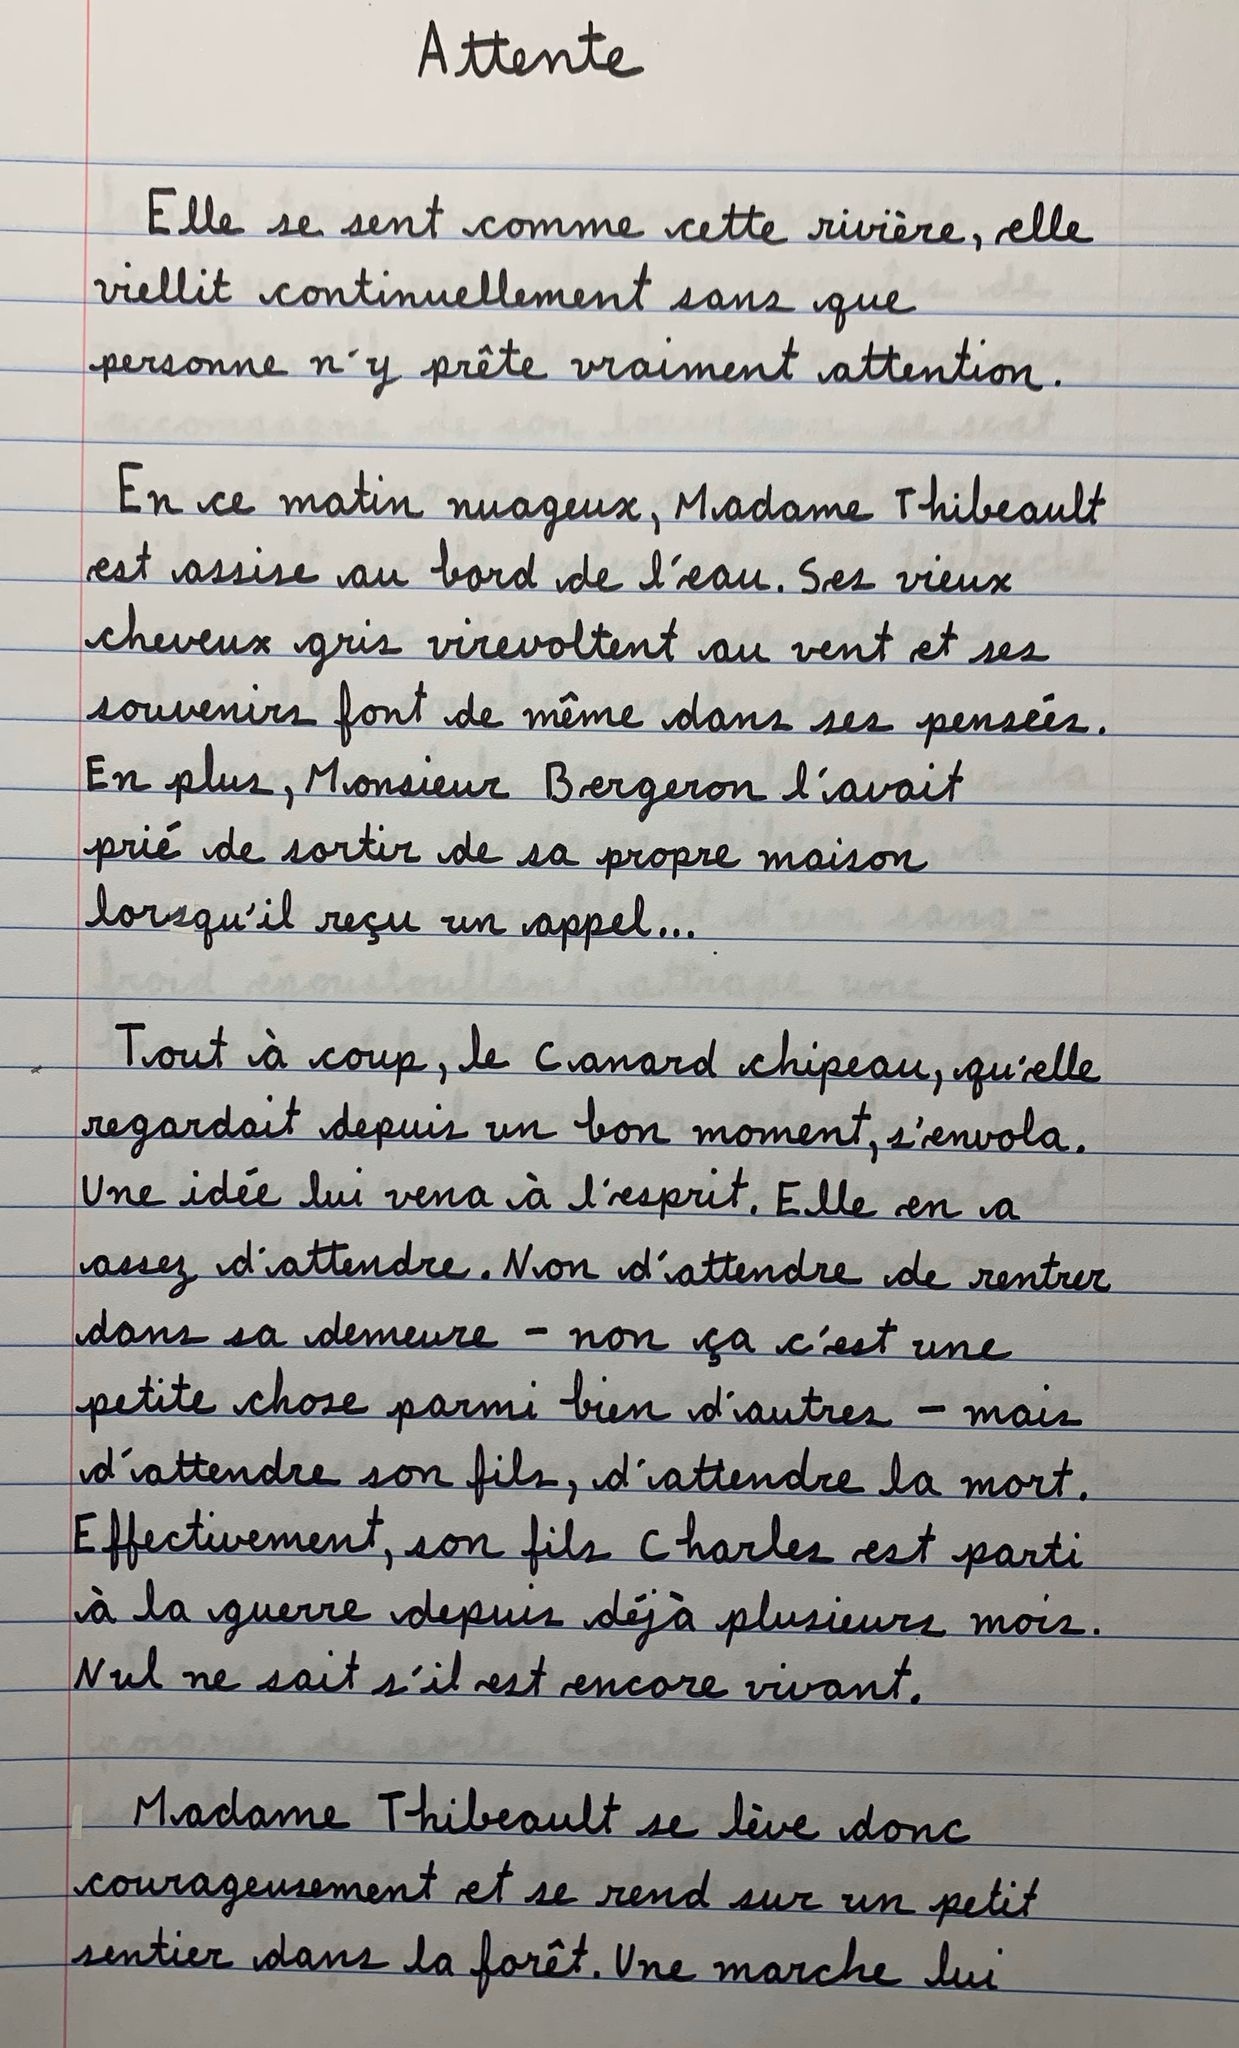 Attente
Elle se sent comme cette rivière, elle
viellit continuellement sans que
personne n'y prête vraiment attention.
En ce matin nuageux, Madame Thibeault
est assise au bord de l'eau. Ses vieux
cheveux gris virevoltent au vent et ses
souvenirs font de même dans ses pensées.
En plus, Monsieur Bergeron l'avait
prié de sortir de sa propre maison
lorsqu'il reçu un appel...
Tout à coup, le Canard chipeau, qu'elle
regardait depuis un bon moment, s'envola.
Une idée lui vena à l'esprit. Elle en a
assez d'attendre. Non d'attendre de rentrer
dans sa demeure - non ça c'est une
petite chose parmi bien d'autres - mais
d'attendre son fils, d'attendre la mort.
Effectivement, son fils Charles est parti
à la guerre depuis déjà plusieurs mois.
Nul ne sait s'il est encore vivant.
Madame Thibeault se lève donc
courageusement et se rend sur un petit
sentier dans la forêt. Une marche lui